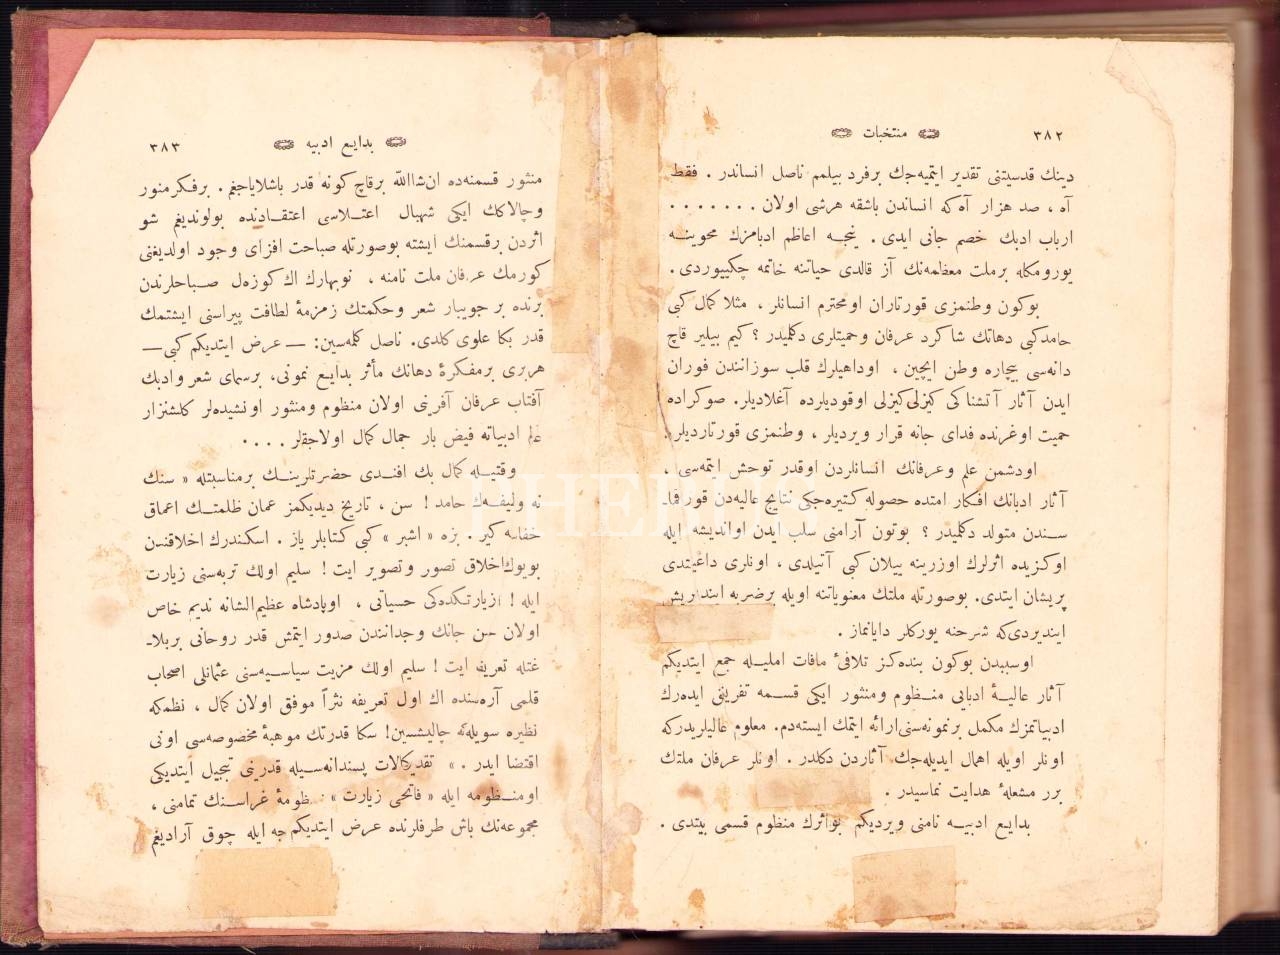 ٣٨٢ منتخبات
دينك قدسيتنى تقدير ايتميه‌جك برفرد بيلمم ناصل انساندر . فقط
آه ، صد هزار آه كه انساندن باشقه هرشى اولان . . . . . . . .
ارباب ادبك خصم جانى ايدى . نيجه اعاظم ادبامزك محوينه
يورومكله برملت معظمه‌نك آز قالدى حياتنه خاتمه چكييوردى .
بوكون وطنمزى قورتاران اومحترم انسانلر ، مثلا كمال كبى
حامدكبى دهاتك شاكرد عرفان وحميتلرى دكلميدر ؟ كيم بيلير قاچ
دانه‌سى بيچاره وطن ايچين ، اوداهيلرك قلب سوزانندن فوران
ايدن آثار آتشناكى كيزلى كيزلى اوقوديلرده آغلاديلر . صوكراده
حميت اوغرنده فداى جانه قرار ويرديلر ، وطنمزى قورتارديلر .
اودشمن علم وعرفانك انسانلردن اوقدر توحش ايتمه‌سى ،
آثار ادبانك افكار امتده حصوله كتيره‌جكى نتايج عاليه‌دن قورقمه‌
سندن متولد دكلميدر ؟ بوتون آرامنى سلب ايدن اوانديشه ايله
اوكزيده اثرلرك اوزرينه ييلان كبى آتيلدى ، اونلرى داغيتدى
پريشان ايتدى . بوصورتله ملتك معنوياتنه اويله برضربه
اينديردى كه شرحنه يوركلر دايانماز .
اوسببدن بوكون بنده‌كز تلافىٔ مافات امليله جمع ايتديكم
آثار عاليهٔ ادبايى منظوم ومنثور ايكى قسمه تفريقنى ايده‌رك
ادبياتمزك مكمل برنمونه‌سنى ارائه ايتمك ايسته‌دم . معلوم عاليلريدركه
اونلر اويله اهمال ايديله‌جك آثاردن دكلدر . اونلر عرفان ملتك
برر مشعلهٔ هدايت نماسيدر .
بدايع ادبيه نامنى ويرديكم بواثرك منظوم قسمى بيتدى .
بدايع ادبيه ٣٨٣
منثور قسمنه‌ده ان‌شاالله برقاچ كونه قدر باشلاياجغم . برفكر منور
وچالاكك ايكى شهبال اعتلاسى اعتقادنده بولونديغم شو
اثردن برقسمنك ايشته بوصورتله صباحت افزاى وجود اولديغنى
كورمك عرفان ملت نامنه ، نوبهارك اك كوزه‌ل صباحلرندن
برنده بر جويبار شعر وحكمتك زمزمهٔ لطافت پيراسنى ايشتمك
قدر بكا علوى كلدى . ناصل كلمه‌سين : — عرض ايتديكم كبى —
هربرى برمفكرهٔ دهانك مآثر بدايع نمونى ، برسماى شعر وادبك
آفتاب عرفان آفرينى اولان منظوم ومنثور اونشيده‌لر كلشنزار
عالم ادبياته فيض بار جمال كمال اولاجقلر . . . .
وقتيله كمال بك افندى حضرتلرينك برمناسبتله « سنك
نه وليفه‌ك حامد ! سن ، تاريخ ديديكمز عمان ظلمتك اعماق
خفاسه كير . بزه « اشبر » كبى كتابلر ياز . اسكندرك اخلاقندن
بويوك اخلاق تصور وتصوير ايت ! سليم اولك تربه‌سنى زيارت
ايله ! زيارتكده‌كى حسياتى ، اوپادشاه عظيم‌الشانه نديم خاص
اولان حسن جانك وجدانندن صدور ايتمش قدر روحانى بربلا‌
غتله تعريف ايت ! سليم اولك مزيت سياسيه‌سنى عثمانلى اصحاب
قلمى آره‌سنده اك اول تعريفه نثراً موفق اولان كمال ، نظمه‌كه
نظيره سويله‌مكه چاليشسين ! سكا قدرتك موهبهٔ مخصوصه‌سى اونى
اقتضا ايدر . » تقديركالات پسندانه‌سيله قدرينى تبجيل ايتديكى
اومنظومه ايله « فاتحى زيارت » منظومهٔ غراسنك تمامنى ،
مجموعه‌نك باش طرفلرنده عرض ايتديكم وجه ايله چوق آراديغم